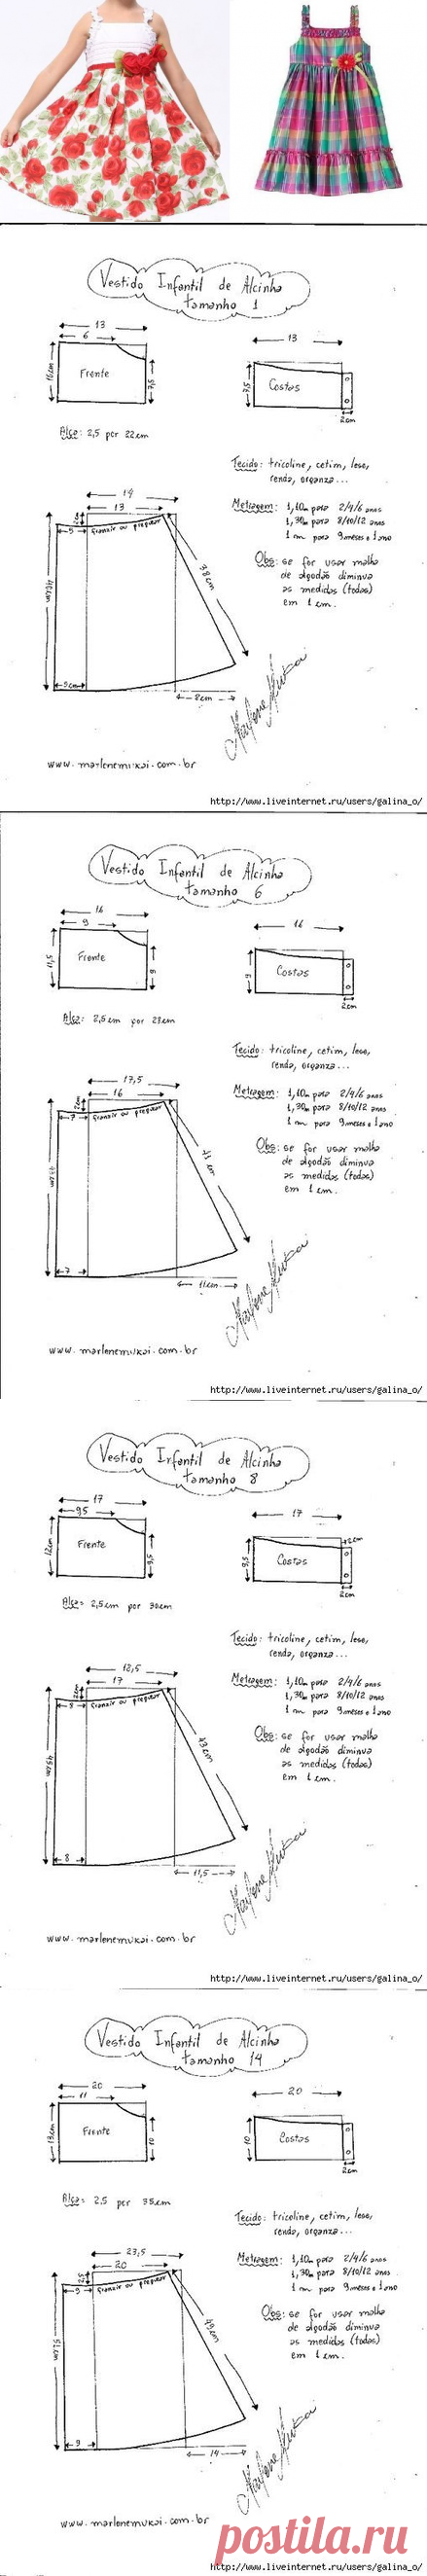 Vestido Infantil de Alcinha
tamanho 1
13
6
Frente
7,5
13
Costas
7,5
2cm
Alça: 2,5 por 22cm
Tecido: tricoline, cetim, lese,
renda, organza...
Metragem: 1,10m para 2/4/6 anos
1,30m para 8/10/12 anos
1 m para 9 meses e 1 ano
Obs: se for usar malha
de algodão diminua
as medidas (todas)
em 1 cm.
14
13
2cm
5
franzir ou preguear
38cm
40cm
5cm
8cm
Marlene Mukai
www.marlenemukai.com.br
http://www.liveinternet.ru/users/galina_o/
Vestido Infantil de Alcinha
tamanho 6
16
9
11,5
Frente
9
16
Costas
9
2cm
Alça: 2,5cm por 28cm
Tecido: tricoline, cetim, lese,
renda, organza...
Metragem: 1,10m para 2/4/6 anos
1,30m para 8/10/12 anos
1 m para 9 meses e 1 ano
Obs: se for usar malha
de algodão diminua
as medidas (todas)
em 1 cm.
17,5
16
2cm
7
franzir ou preguear
41 cm
7
11cm
Marlene Mukai
www.marlenemukai.com.br
http://www.liveinternet.ru/users/galina_o/
Vestido Infantil de Alcinha
tamanho 8
17
9,5
12cm
Frente
9,5
17
+2cm
Costas
9,5
2cm
Alça= 2,5cm por 30cm
Tecido: tricoline, cetim, lese,
renda, organza...
Metragem: 1,10m para 2/4/6 anos
1,30m para 8/10/12 anos
1 m para 9 meses e 1 ano
Obs: se for usar malha
de algodão diminua
as medidas (todas)
em 1 cm.
17
2cm
8
franzir ou preguear
43cm
45cm
8
11,5
Marlene Mukai
www.marlenemukai.com.br
http://www.liveinternet.ru/users/galina_o/
Vestido Infantil de Alcinha
tamanho 14
20
11
13cm
Frente
10
20
Costas
10
2cm
Alça= 2,5 por 35cm
Tecido: tricoline, cetim, lese,
renda, organza...
Metragem: 1,10m para 2/4/6 anos
1,30m para 8/10/12 anos
1 m para 9 meses e 1 ano
Obs: se for usar malha
de algodão diminua
as medidas (todas)
em 1 cm.
23,5
20
2,5
9
franzir ou preguear
49cm
51cm
9
14
Marlene Mukai
www.marlenemukai.com.br
postila.ru
http://www.liveinternet.ru/users/galina_o/